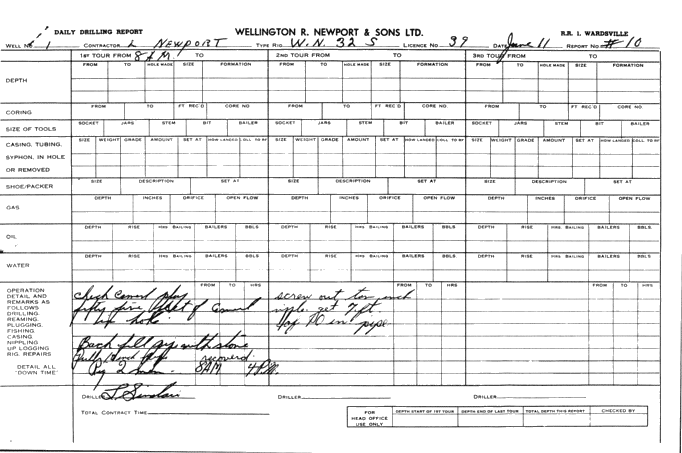 DAILY DRILLING REPORT WELLINGTON R. NEWPORT & SONS LTD. R.R. 1. WARDSVILLE
WELL No 1 CONTRACTOR L NEWPORT TYPE RIG W.N. 32 S LICENCE No 39 DATE June 11 REPORT No # 10
1ST TOUR FROM 8 A M TO 2ND TOUR FROM TO 3RD TOUR FROM TO
DEPTH
FROM TO HOLE MADE SIZE FORMATION FROM TO HOLE MADE SIZE FORMATION FROM TO HOLE MADE SIZE FORMATION
CORING
FROM TO FT REC'D CORE NO. FROM TO FT REC'D CORE NO. FROM TO FT REC'D CORE NO.
SIZE OF TOOLS
SOCKET JARS STEM BIT BAILER SOCKET JARS STEM BIT BAILER SOCKET JARS STEM BIT BAILER
CASING, TUBING, SYPHON, IN HOLE OR REMOVED
SIZE WEIGHT GRADE AMOUNT SET AT HOW LANDED SIZE WEIGHT GRADE AMOUNT SET AT HOW LANDED SIZE WEIGHT GRADE AMOUNT SET AT HOW LANDED
SHOE/PACKER
SIZE DESCRIPTION SET AT SIZE DESCRIPTION SET AT SIZE DESCRIPTION SET AT
GAS
DEPTH INCHES ORIFICE OPEN FLOW DEPTH INCHES ORIFICE OPEN FLOW DEPTH INCHES ORIFICE OPEN FLOW
OIL
DEPTH RISE HRS BAILING BAILERS BBLS DEPTH RISE HRS BAILING BAILERS BBLS DEPTH RISE HRS BAILING BAILERS BBLS.
WATER
DEPTH RISE HRS BAILING BAILERS BBLS DEPTH RISE HRS BAILING BAILERS BBLS DEPTH RISE HRS BAILING BAILERS BBLS
FROM TO HRS FROM TO HRS FROM TO HRS
OPERATION
DETAIL AND
REMARKS AS
FOLLOWS
DRILLING.
REAMING.
PLUGGING.
FISHING
CASING
NIPPLING
UP LOGGING
RIG. REPAIRS
DETAIL ALL
"DOWN TIME"
Check Cement plug
fifty five feet of Cement
in hole
Back fill with stone
recovered
2 man 8AM 4 PM
screw out ten inch
nipple get 7 ft.
of 10 in pipe
DRILLER L Sinclair DRILLER DRILLER
TOTAL CONTRACT TIME
FOR HEAD OFFICE USE ONLY
DEPTH START OF 1ST TOUR DEPTH END OF LAST TOUR TOTAL DEPTH THIS REPORT CHECKED BY